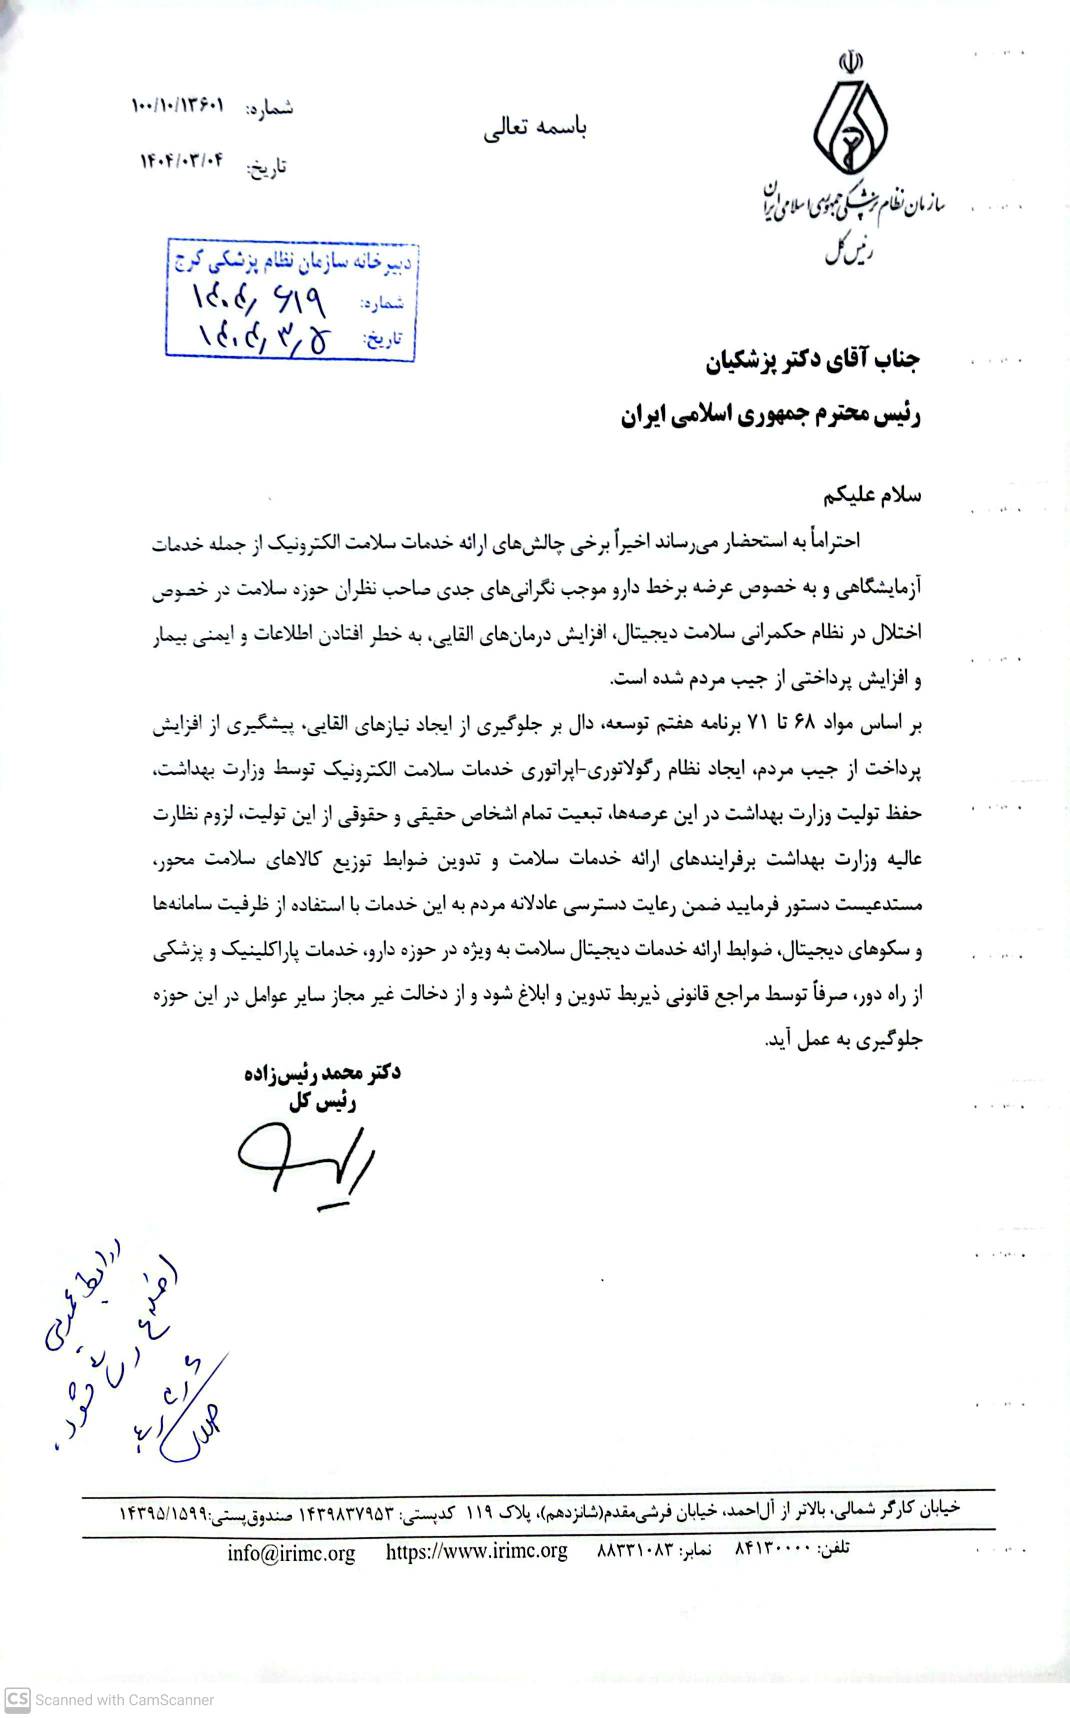 شماره: ۱۰۰/۱۰/۱۳۶۰۱
باسمه تعالی
تاریخ: ۱۴۰۴/۰۳/۰۴
سازمان نظام پزشکی جمهوری اسلامی ایران
رئیس کل
دبیرخانه سازمان نظام پزشکی کرج
شماره: ۱۴۰۴/۶۱۹
تاریخ: ۱۴۰۴/۳/۵
جناب آقای دکتر پزشکیان
رئیس محترم جمهوری اسلامی ایران
سلام علیکم
احتراماً به استحضار می‌رساند اخیراً برخی چالش‌های ارائه خدمات سلامت الکترونیک از جمله خدمات
آزمایشگاهی و به خصوص عرضه برخط دارو موجب نگرانی‌های جدی صاحب نظران حوزه سلامت در خصوص
اختلال در نظام حکمرانی سلامت دیجیتال، افزایش درمان‌های القایی، به خطر افتادن اطلاعات و ایمنی بیمار
و افزایش پرداختی از جیب مردم شده است.
بر اساس مواد ۶۸ تا ۷۱ برنامه هفتم توسعه، دال بر جلوگیری از ایجاد نیازهای القایی، پیشگیری از افزایش
پرداخت از جیب مردم، ایجاد نظام رگولاتوری-اپراتوری خدمات سلامت الکترونیک توسط وزارت بهداشت،
حفظ تولیت وزارت بهداشت در این عرصه‌ها، تبعیت تمام اشخاص حقیقی و حقوقی از این تولیت، لزوم نظارت
عالیه وزارت بهداشت برفرایندهای ارائه خدمات سلامت و تدوین ضوابط توزیع کالاهای سلامت محور،
مستدعیست دستور فرمایید ضمن رعایت دسترسی عادلانه مردم به این خدمات با استفاده از ظرفیت سامانه‌ها
و سکوهای دیجیتال، ضوابط ارائه خدمات دیجیتال سلامت به ویژه در حوزه دارو، خدمات پاراکلینیک و پزشکی
از راه دور، صرفاً توسط مراجع قانونی ذیربط تدوین و ابلاغ شود و از دخالت غیر مجاز سایر عوامل در این حوزه
جلوگیری به عمل آید.
دکتر محمد رئیس‌زاده
رئیس کل
روابط عمومی
شود.
خیابان کارگر شمالی، بالاتر از آل‌احمد، خیابان فرشی‌مقدم(شانزدهم)، پلاک ۱۱۹ کدپستی: ۱۴۳۹۸۳۷۹۵۳ صندوق‌پستی:۱۴۳۹۵/۱۵۹۹
تلفن: ۸۴۱۳۰۰۰۰ نمابر: ۸۸۳۳۱۰۸۳ https://www.irimc.org info@irimc.org
CS Scanned with CamScanner